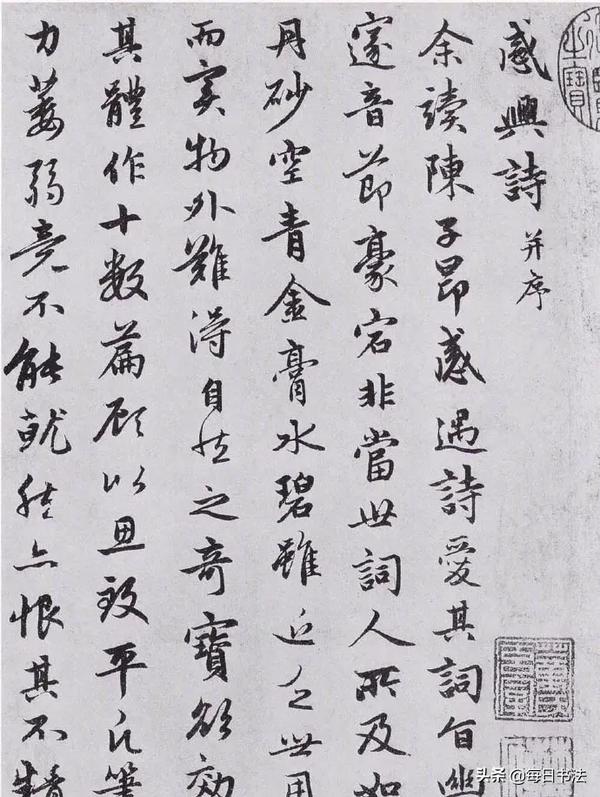 感興詩 并序
余讀陳子昂感遇詩愛其詞旨幽
邃音節豪宕非當世詞人所及如
丹砂空青金膏水碧雖近乏世用
而實物外難得自然之奇寶欲効
其體作十數篇顧以思致平凡筆
力萎弱竟不能就然亦恨其不精
之寶
头条 @每日书法